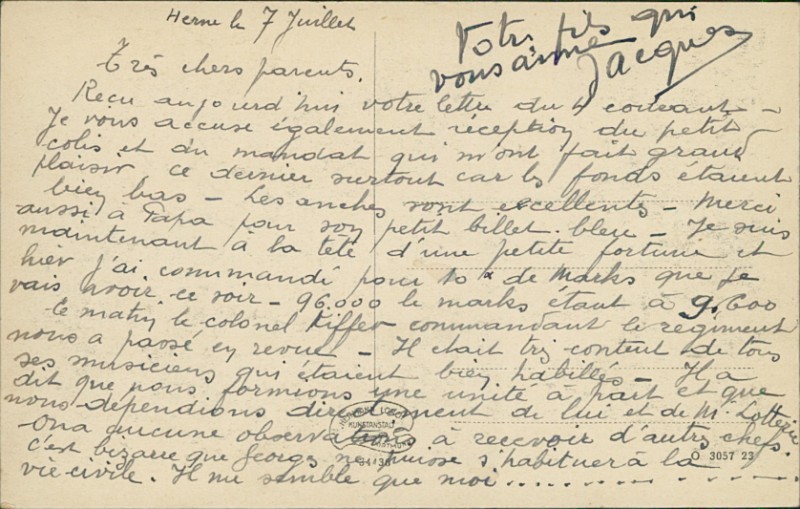 Herne le 7 Juillet
Très chers parents.
Reçu aujourd'hui votre lettre du 4 courant -
Je vous accuse également réception du petit
colis et du mandat qui m'ont fait grand
plaisir ce dernier surtout car les fonds étaient
bien bas - Les anches sont excellentes - Merci
aussi à Papa pour son petit billet bleu - Je suis
maintenant à la tête d'une petite fortune et
hier j'ai commandé pour 10 de Marks que je
vais avoir ce soir - 96.000 le marks étant à 9.600
Ce matin le colonel Kiffer commandant le régiment
nous a passé en revue - Il était très content de tous
ses musiciens qui étaient bien habillés - Il a
dit que nous formions une unité à part et que
nous dépendions directement de lui et de Mr
On a aucune observations à recevoir d'autres chefs.
c'est bizarre que Georges ne puisse s'habituer à la
vie civile. Il me semble que moi..............
Votre fils qui
vous aime
Jacques
KUNSTANSTALT
O 3057 23